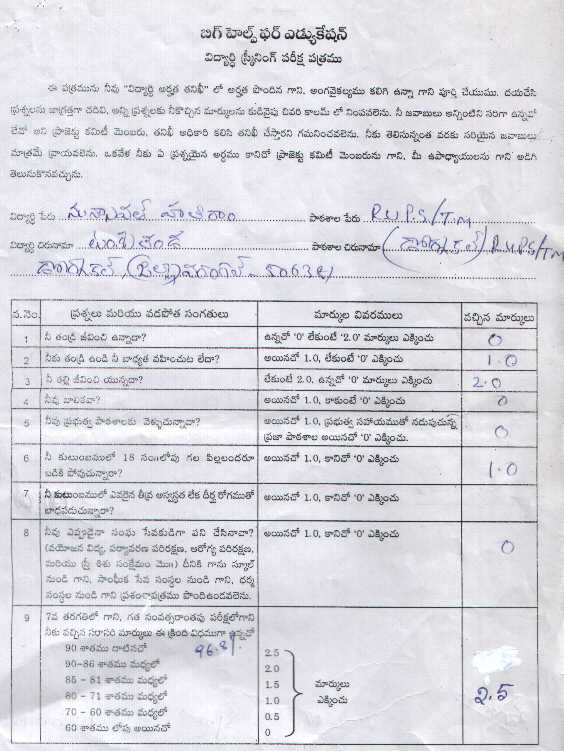 బిగ్ హెల్ప్ ఫర్ ఎడ్యుకేషన్
విద్యార్థి స్క్రీనింగ్ పరీక్ష పత్రము
ఈ పత్రమును నీవు "విద్యార్థి అర్హత తనిఖీ" లో అర్హత పొందిన గాని, అంగవైకల్యము కలిగి ఉన్నా గాని పూర్తి చేయుము. దయచేసి
ప్రశ్నలను జాగ్రత్తగా చదివి, అన్ని ప్రశ్నలకు నీకొచ్చిన మార్కులను కుడివైపు చివరి కాలమ్ లో నింపవలెను. నీ జవాబులు అన్నింటిని సరిగా ఉన్నవో
లేవో అని ప్రాజెక్టు కమిటీ మెంబరు, తనిఖీ అధికారి కలిసి తనిఖీ చేస్తారని గమనించవలెను. నీకు తెలిసున్నంత వరకు సరియైన జవాబులు
మాత్రమే వ్రాయవలెను. ఒకవేళ నీకు ఏ ప్రశ్నయైన అర్థము కానిచో ప్రాజెక్టు కమిటీ మెంబరును గాని, మీ ఉపాధ్యాయులను గాని అడిగి
తెలుసుకొనవచ్చును.
విద్యార్థి పేరు పాఠశాల పేరు R.U.P.S/T.M
విద్యార్థి చిరునామా పాఠశాల చిరునామా R.U.P.S/TM
506381
వ.నెం. ప్రశ్నలు మరియు వడపోత సంగతులు మార్కుల వివరములు వచ్చిన మార్కులు
1 నీ తండ్రి జీవించి ఉన్నాడా? ఉన్నచో '0' లేకుంటే '2.0' మార్కులు ఎక్కించు 0
2 నీకు తండ్రి ఉండి నీ బాధ్యత వహించుట లేదా? అయినచో 1.0, లేకుంటే '0' ఎక్కించు 1.0
3 నీ తల్లి జీవించి యున్నదా? లేకుంటే 2.0, ఉన్నచో '0' మార్కులు ఎక్కించు 2.0
4 నీవు బాలికవా? అయినచో 1.0, కాకుంటే '0' ఎక్కించు 0
5 నీవు ప్రభుత్వ పాఠశాలకు వెళ్ళుచున్నావా? అయినచో 1.0, ప్రభుత్వ సహాయముతో నడుపుచున్న
ప్రజా పాఠశాల అయినచో '0' ఎక్కించు. 0
6 నీ కుటుంబములో 18 సం॥లోపు గల పిల్లలందరూ
బడికి పోవుచున్నారా? అయినచో 1.0, కానిచో '0' ఎక్కించు 1.0
7 నీ కుటుంబములో ఎవరైన తీవ్ర అస్వస్థత లేక దీర్ఘ రోగముతో
బాధపడుచున్నారా? అయినచో 1.0, కానిచో '0' ఎక్కించు
8 నీవు ఎప్పుడైనా సంఘ సేవకుడిగా పని చేసినావా? అయినచో 1.0, కానిచో '0' ఎక్కించు 0
(వయోజన విద్య, పర్యావరణ పరిరక్షణ, ఆరోగ్య పరిరక్షణ,
మరియు స్త్రీ శిశు సంక్షేమం మొ॥) దీనికి గాను స్కూల్
నుండి గాని, సాంఘిక సేవ సంస్థల నుండి గాని, ధర్మ
సంస్థల నుండి గాని ప్రశంసాపత్రము పొందిఉండవలెను.
9 7వ తరగతిలో గాని, గత సంవత్సరాంతపు పరీక్షలోగాని
నీకు వచ్చిన సరాసరి మార్కులు ఈ క్రింది విధముగా ఉన్నచో
90 శాతము దాటినచో 96.8% 2.5
90-86 శాతము మధ్యలో 2.0
85 - 81 శాతము మధ్యలో 1.5 మార్కులు
80 - 71 శాతము మధ్యలో 1.0 ఎక్కించు 2.5
70 - 60 శాతము మధ్యలో 0.5
60 శాతము లోపు అయినచో 0